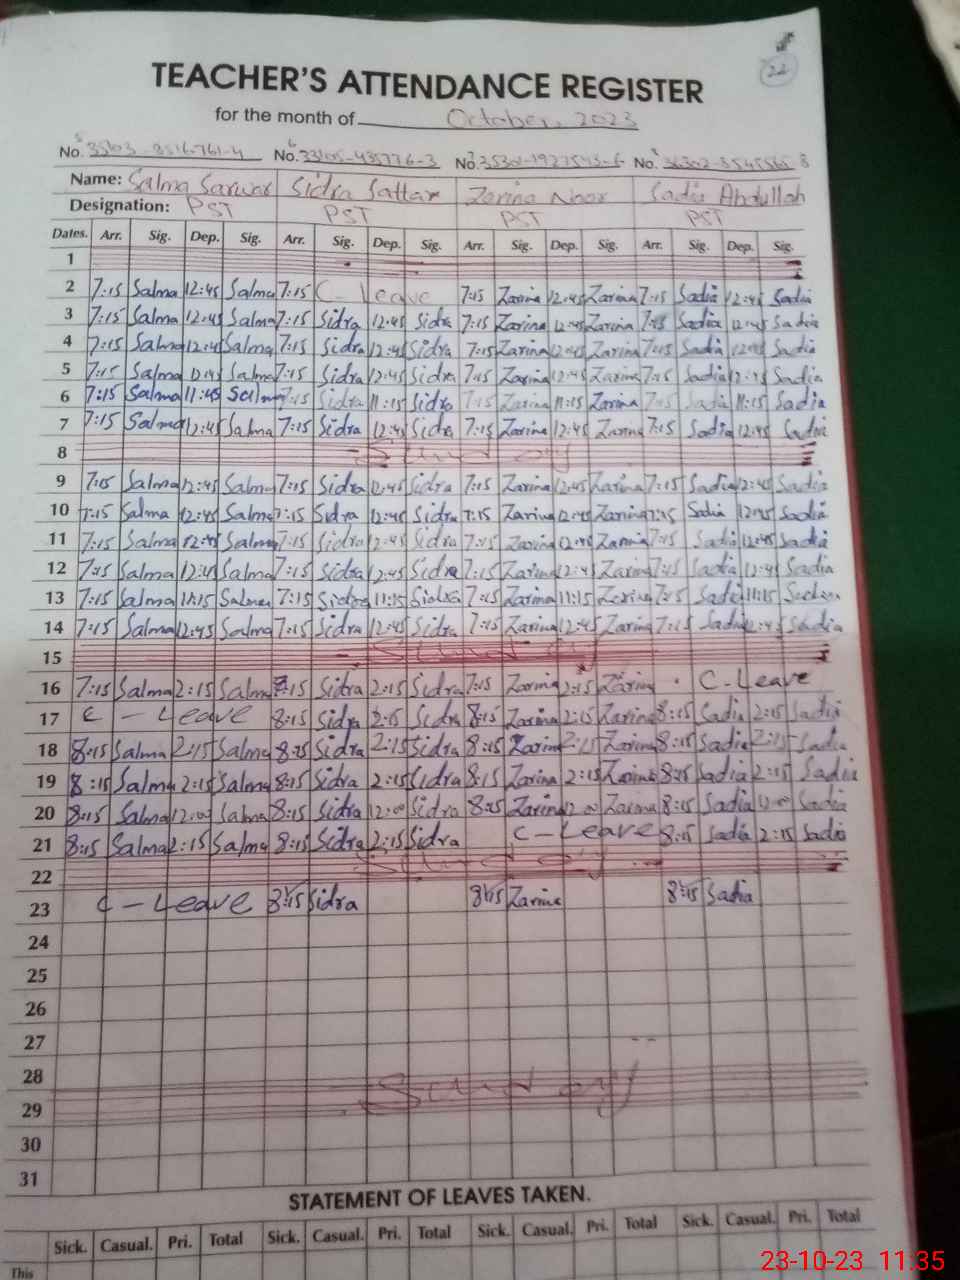 22
TEACHER'S ATTENDANCE REGISTER
for the month of October, 2023
No. No. No. No.
Name: Salma Sarwar Sidra Sattar Zarina Noor Sadia Abdullah
Designation: PST PST PST PST
Dates. Arr. Sig. Dep. Sig. Arr. Sig. Dep. Sig. Arr. Sig. Dep. Sig. Arr. Sig. Dep. Sig.
1
2 7:15 Salma 12:45 Salma 7:15 C - Leave 7:15 Zarina 12:45 Zarina 7:15 Sadia 12:45 Sadia
3 7:15 Salma 12:45 Salma 7:15 Sidra 12:45 Sidra 7:15 Zarina 12:45 Zarina 7:15 Sadia 12:45 Sadia
4 7:15 Salma 12:45 Salma 7:15 Sidra 12:45 Sidra 7:15 Zarina 12:45 Zarina 7:15 Sadia 12:45 Sadia
5 7:15 Salma 12:45 Salma 7:15 Sidra 12:45 Sidra 7:15 Zarina 12:45 Zarina 7:15 Sadia 12:45 Sadia
6 7:15 Salma 11:45 Salma 7:15 Sidra 11:15 Sidra 7:15 Zarina 11:15 Zarina 7:15 Sadia 11:15 Sadia
7 7:15 Salma 12:45 Salma 7:15 Sidra 12:45 Sidra 7:15 Zarina 12:45 Zarina 7:15 Sadia 12:45 Sadia
8
9 7:15 Salma 12:45 Salma 7:15 Sidra 12:45 Sidra 7:15 Zarina 12:45 Zarina 7:15 Sadia 12:45 Sadia
10 7:15 Salma 12:45 Salma 7:15 Sidra 12:45 Sidra 7:15 Zarina 12:45 Zarina 7:15 Sadia 12:45 Sadia
11 7:15 Salma 12:45 Salma 7:15 Sidra 12:45 Sidra 7:15 Zarina 12:45 Zarina 7:15 Sadia 12:45 Sadia
12 7:15 Salma 12:45 Salma 7:15 Sidra 12:45 Sidra 7:15 Zarina 12:45 Zarina 7:15 Sadia 12:45 Sadia
13 7:15 Salma 11:15 Salma 7:15 Sidra 11:15 Sidra 7:15 Zarina 11:15 Zarina 7:15 Sadia 11:15 Sadia
14 7:15 Salma 12:45 Salma 7:15 Sidra 12:45 Sidra 7:15 Zarina 12:45 Zarina 7:15 Sadia 12:45 Sadia
15
16 7:15 Salma 2:15 Salma 8:15 Sidra 2:15 Sidra 7:15 Zarina 2:15 Zarina C-Leave
17 C - Leave 8:15 Sidra 2:15 Sidra 8:15 Zarina 2:15 Zarina 8:15 Sadia 2:15 Sadia
18 8:15 Salma 2:15 Salma 8:15 Sidra 2:15 Sidra 8:15 Zarina 2:15 Zarina 8:15 Sadia 2:15 Sadia
19 8:15 Salma 2:15 Salma 8:15 Sidra 2:15 Sidra 8:15 Zarina 2:15 Zarina 8:15 Sadia 2:15 Sadia
20 8:15 Salma 12:00 Salma 8:15 Sidra 12:00 Sidra 8:15 Zarina 12:00 Zarina 8:15 Sadia 12:00 Sadia
21 8:15 Salma 2:15 Salma 8:15 Sidra 2:15 Sidra C-Leave 8:15 Sadia 2:15 Sadia
22
23 C - Leave 8:15 Sidra 8:15 Zarina 8:15 Sadia
24
25
26
27
28
29
30
31
STATEMENT OF LEAVES TAKEN.
Sick. Casual. Pri. Total Sick. Casual. Pri. Total Sick. Casual. Pri. Total Sick. Casual. Pri. Total
This
23-10-23 11:35